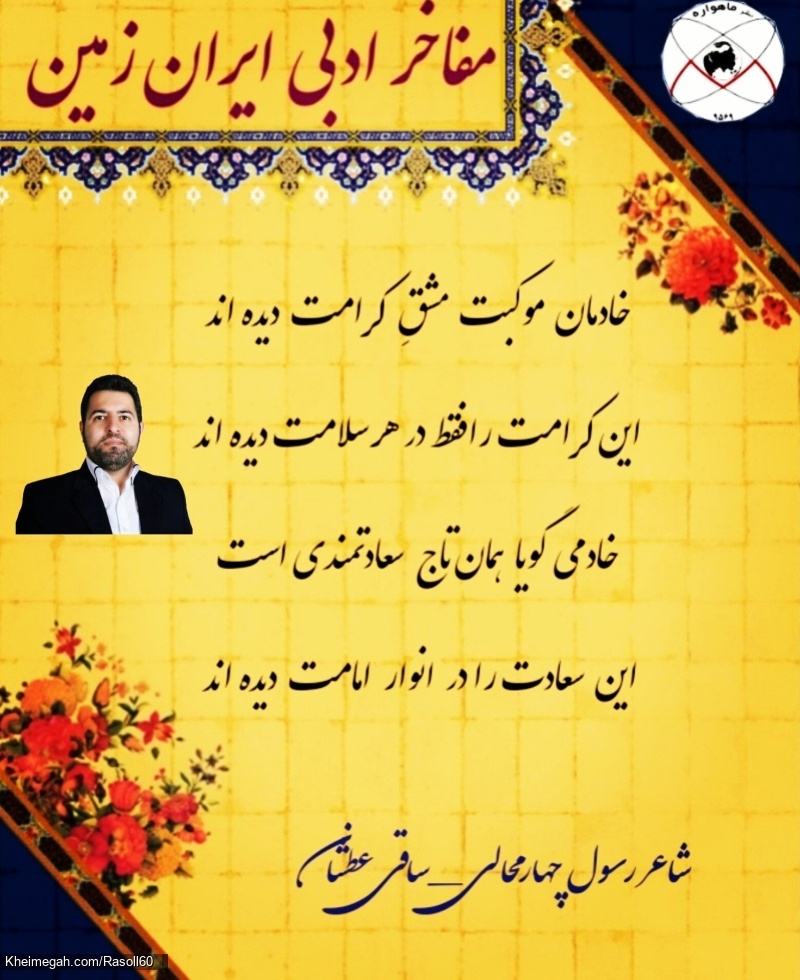 مفاخر ادبی ایران زمین
ماهواره
۹۵۶۹
خادمان موکبت مشقِ کرامت دیده اند
این کرامت را فقط در هر سلامت دیده اند
خادمی گویا همان تاج سعادتمندی است
این سعادت را در انوار امامت دیده اند
شاعر رسول چهارمحالی_ساقی عطشان
Kheimegah.com/Rasoll60